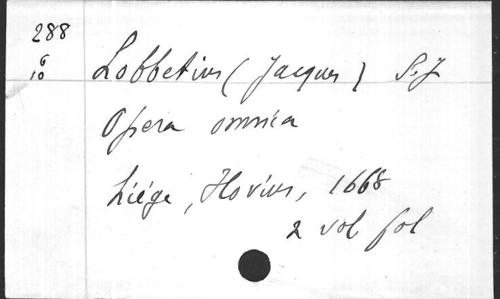 288
6
10
Lobbetius (Jacques) S.J
Opera omnia
Liége, Hovius, 1668
2 vol fol